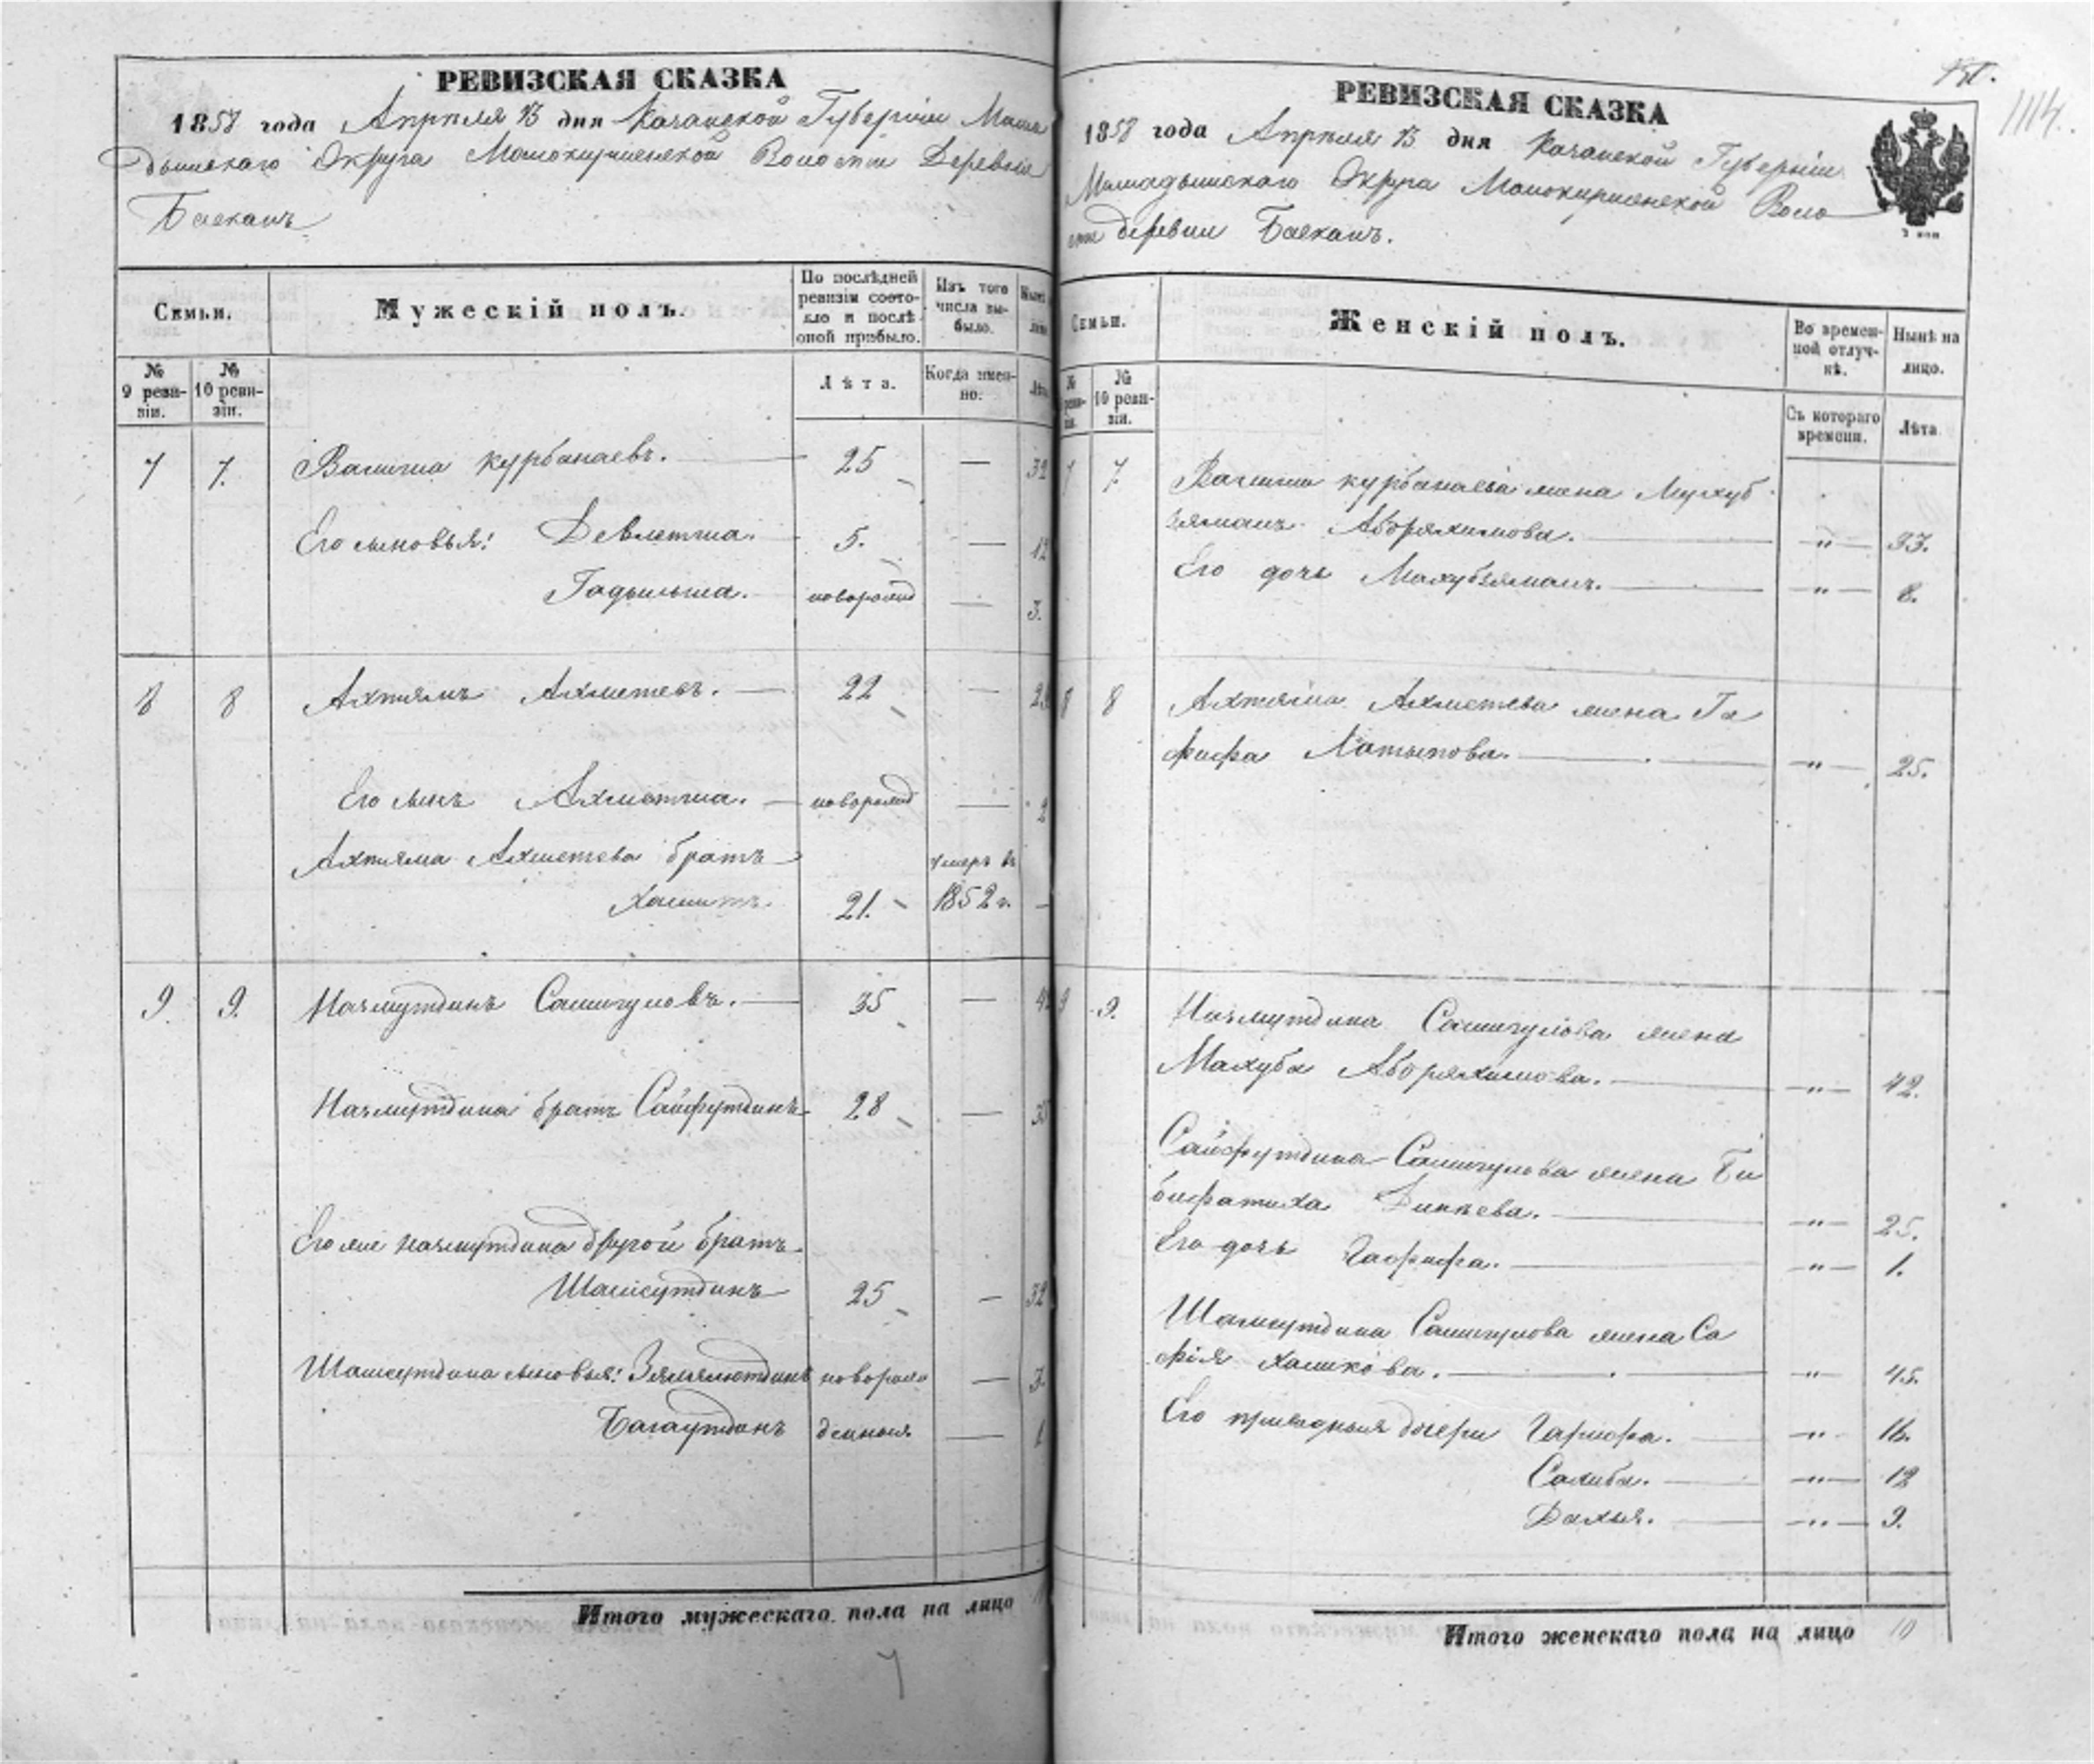 РЕВИЗСКАЯ СКАЗКА
1858 года Апреля 13 дня Казанской Губерніи Мама
дышскаго Округа Мамокирменской Волости Деревни
Баекань
Семьи.
Мужескій полъ.
По послѣдней ревизіи состояло и послѣ оной прибыло.
Изъ того числа выбыло.
№ 9 ревизіи.
№ 10 ревизіи.
Лѣта.
Когда именно.
7 7. Валиша Курбанаевъ. 25 — 32
Его сыновья: Девлетша. 5. — 12
Гадыльша. новорожд — 3.
8 8 Ахтямъ Ахметевъ. 22 —
Его сынъ Ахметша. новорожд — 2
Ахтяма Ахметева братъ умеръ въ
Хамитъ. 21. 1852 г. —
9. 9. Назмутдинъ Салигуловъ. 35 —
Назмутдина братъ Сайфутдинъ 28 — 35
Его же Назмутдина другой братъ
Шамсутдинъ 25 — 32
Шамсутдина сыновья: Зялялютдинъ новорож — 3.
Багаутдинъ денныя. — 1
Итого мужескаго пола на лицо
7
РЕВИЗСКАЯ СКАЗКА
1114.
1858 года Апреля 13 дня Казанской Губерніи
Мамадышскаго Округа Мамокирменской Воло
сти деревни Баекань.
3 коп
Семьи.
Женскій полъ.
Во временной отлучкѣ.
Нынѣ на лицо.
№ ревизіи.
№ 10 ревизіи.
Съ котораго времени.
Лѣта
7 7. Валиши Курбанаева жена Махуб
зяманъ Абдряхимова. — " — 33.
Его дочь Махубзяманъ. — " — 8.
8 8 Ахтяма Ахметева жена Га
фифа Латыпова. — " — 25.
9 9. Назмутдина Салигулова жена
Махуба Абдряхимова. — " — 42.
Сайфутдина Салигулова жена Би
бифатиха Диняева. — " — 25.
Его дочь Гафифа. — " — 1.
Шамсутдина Салигулова жена Са
фія Хамкова. — " — 45.
Его приводныя дочери Гарифа. — " — 16.
Салиба. — " — 12
Далья. — " — 9.
Итого женскаго пола на лицо 10